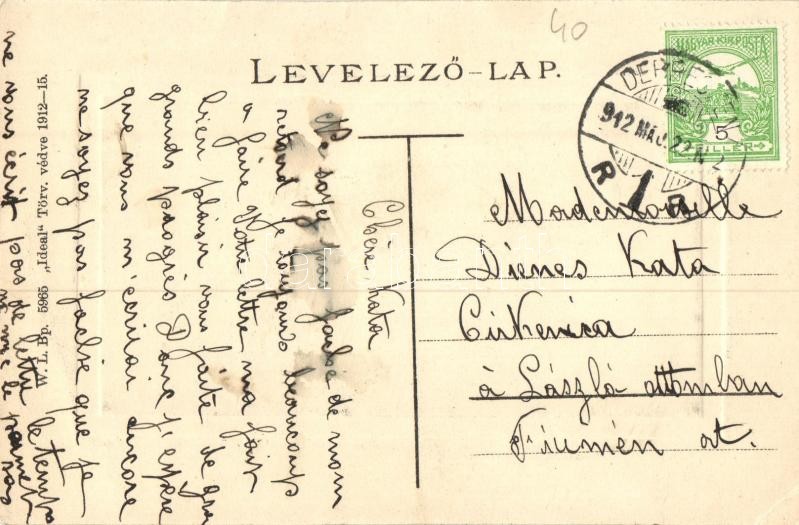 40
LEVELEZŐ-LAP.
MAGYAR KIR. POSTA
5
FILLÉR
912 MÁJ. 22. N 2
1
Mademoiselle
Dienes Kata
Cirkenica
à László ottomban
Fiumén át.
W. L. Bp. 5965 „Ideal" Törv. védve 1912-15.
Chère Kata
Ne soyez pas fachée de mon
retard je toujours beaucoup
a faire Votre lettre m'a fait
bien plaisir vous faite de grands
grands progrès Donc j'espère
que vous m'écrirai encore
ne soyez pas fachée que je
ne vous écrit pas de lettre
le temps